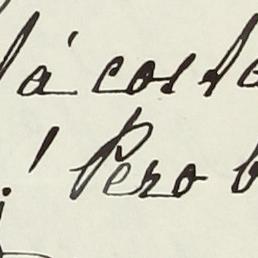 á costa
! Pero b